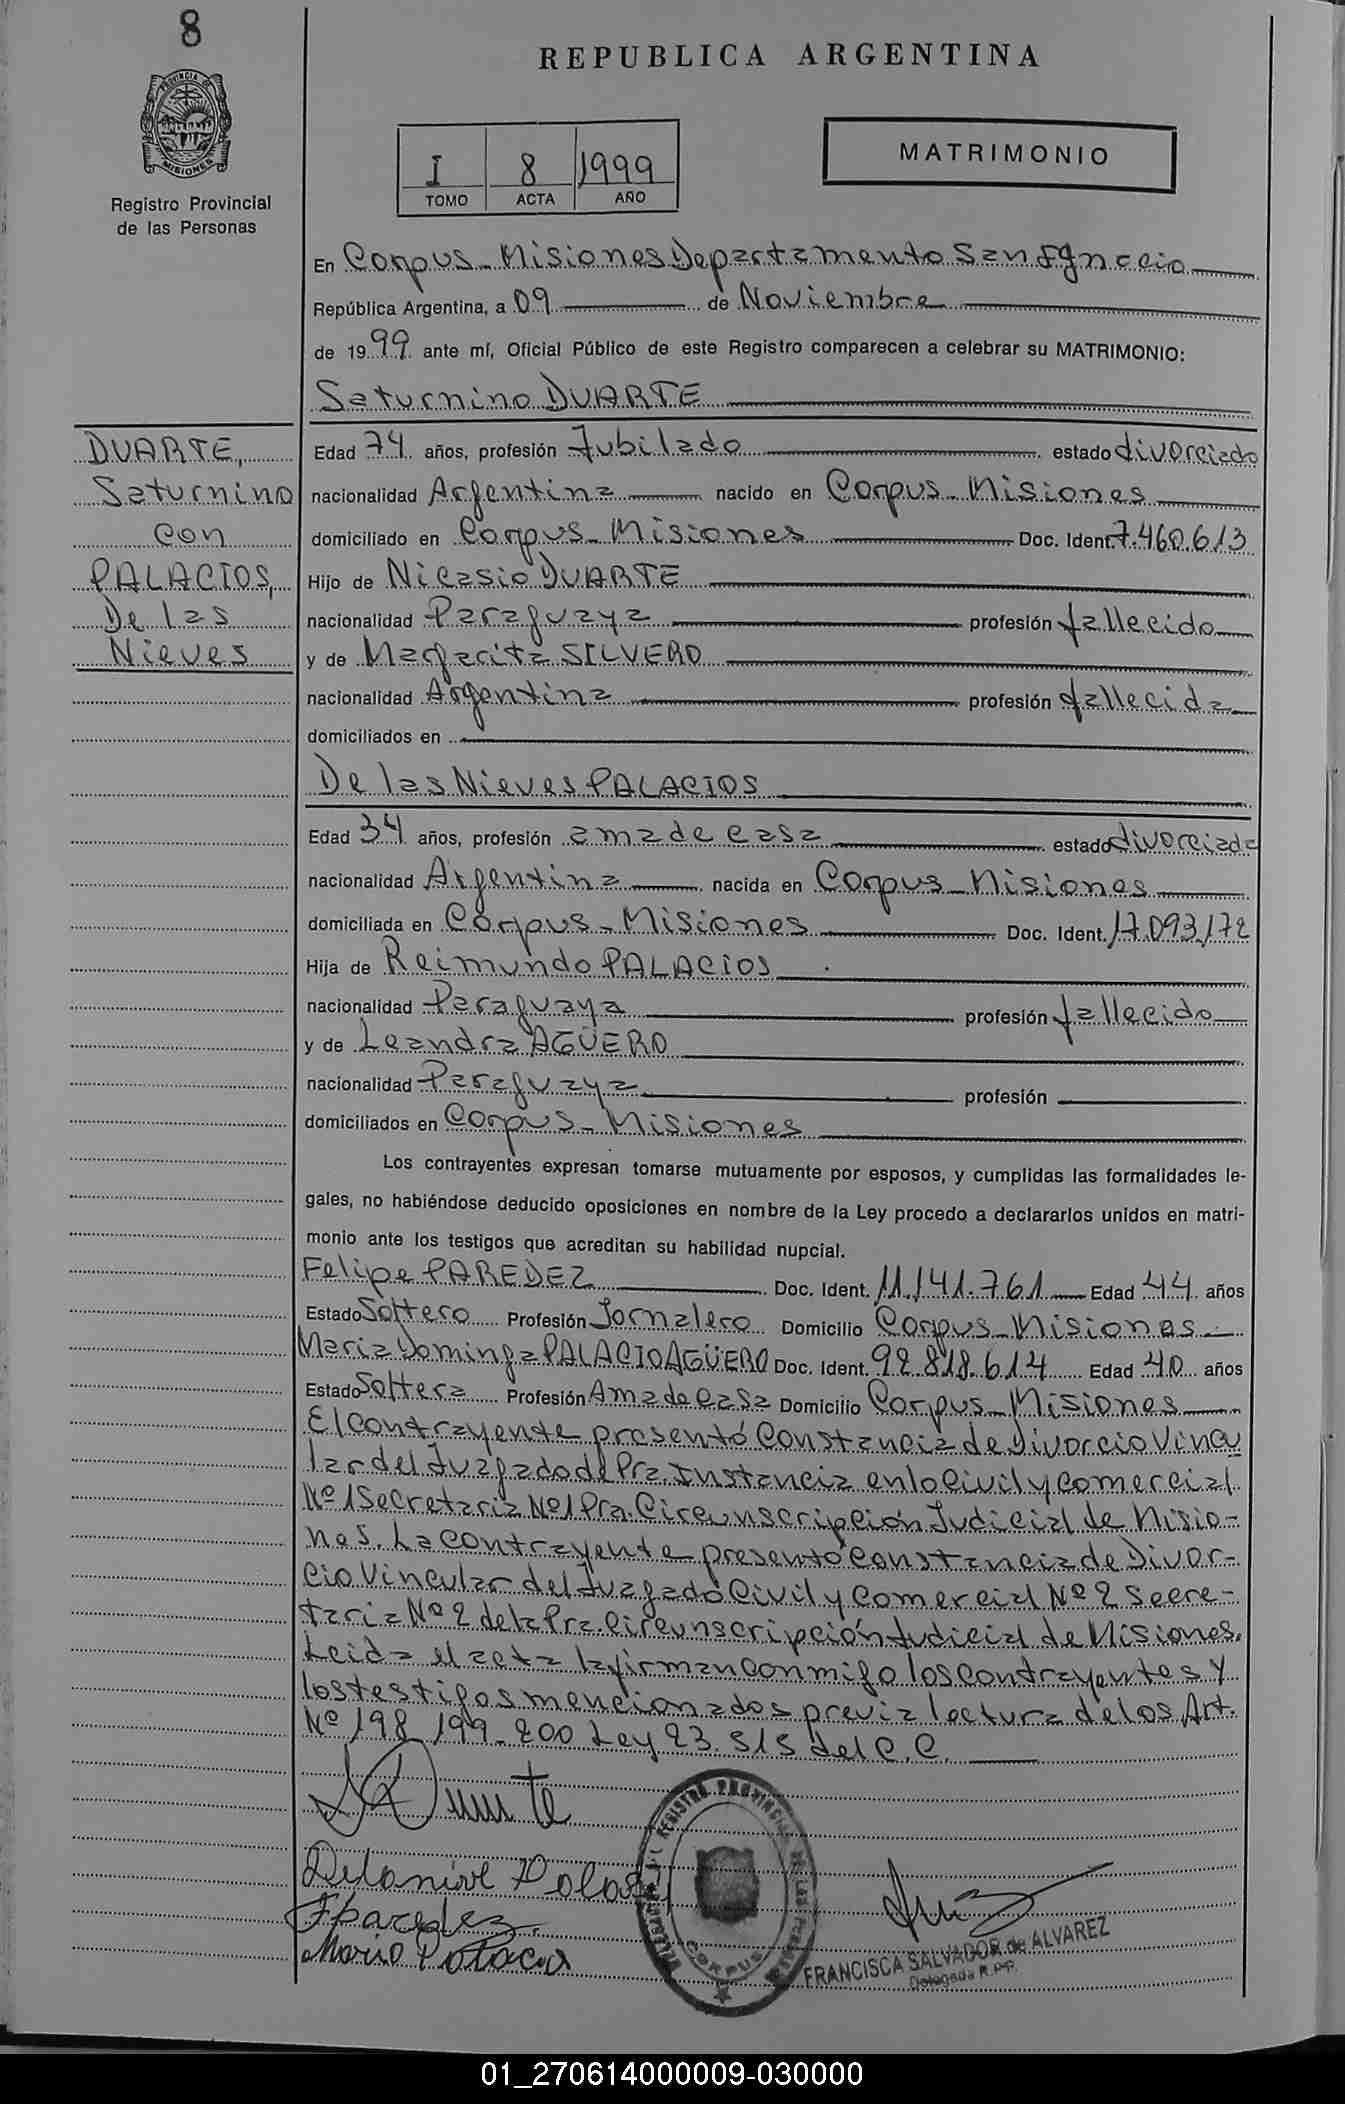 8
REPUBLICA ARGENTINA
PROVINCIA DE MISIONES
Registro Provincial
de las Personas
I 8 1999
TOMO ACTA AÑO
MATRIMONIO
En Corpus - Misiones Departamento San Ignacio
República Argentina, a 09 de Noviembre
de 1999 ante mí, Oficial Público de este Registro comparecen a celebrar su MATRIMONIO:
Saturnino DUARTE
DUARTE,
Saturnino
con
PALACIOS,
De las
Nieves
Edad 74 años, profesión Jubilado estado divorciado
nacionalidad Argentina nacido en Corpus - Misiones
domiciliado en Corpus - Misiones Doc. Ident. 7.460.613
Hijo de Nicasio DUARTE
nacionalidad Paraguaya profesión fallecido
y de Margarita SILVERO
nacionalidad Argentina profesión fallecida
domiciliados en
De las Nieves PALACIOS
Edad 34 años, profesión ama de casa estado divorciada
nacionalidad Argentina nacida en Corpus - Misiones
domiciliada en Corpus - Misiones Doc. Ident. 17.093.172
Hija de Reimundo PALACIOS
nacionalidad Paraguaya profesión fallecido
y de Leandra AGÜERO
nacionalidad Paraguaya profesión
domiciliados en Corpus - Misiones
Los contrayentes expresan tomarse mutuamente por esposos, y cumplidas las formalidades le-
gales, no habiéndose deducido oposiciones en nombre de la Ley procedo a declararlos unidos en matri-
monio ante los testigos que acreditan su habilidad nupcial.
Felipe PAREDEZ Doc. Ident. 11.141.761 Edad 44 años
Estado Soltero Profesión Jornalero Domicilio Corpus - Misiones
Maria Dominga PALACIO AGÜERO Doc. Ident. 92.818.614 Edad 40 años
Estado Soltera Profesión Ama de casa Domicilio Corpus - Misiones
El contrayente presentó Constancia de Divorcio Vincu
lar del Juzgado de Pra. Instancia en lo Civil y Comercial
Nº 1 Secretaria Nº 1 Pra. Circunscripción Judicial de Misio-
nes. La contrayente presentó constancia de Divor-
cio Vincular del Juzgado Civil y Comercial Nº 2 Secre-
taria Nº 2 de la Pra. Circunscripción Judicial de Misiones.
Leida el acta la firman conmigo los contrayentes y
los testigos mencionados previa lectura de los Art.
Nº 198, 199 - 200 Ley 23.515 del C.C.
S Duarte
Delanive Palacio
F Paredez
Maria Palacio
REGISTRO PROVINCIAL DE LAS PERSONAS
CORPUS
FRANCISCA SALVADOR de ALVAREZ
Delegada R.P.P.
01_270614000009-030000